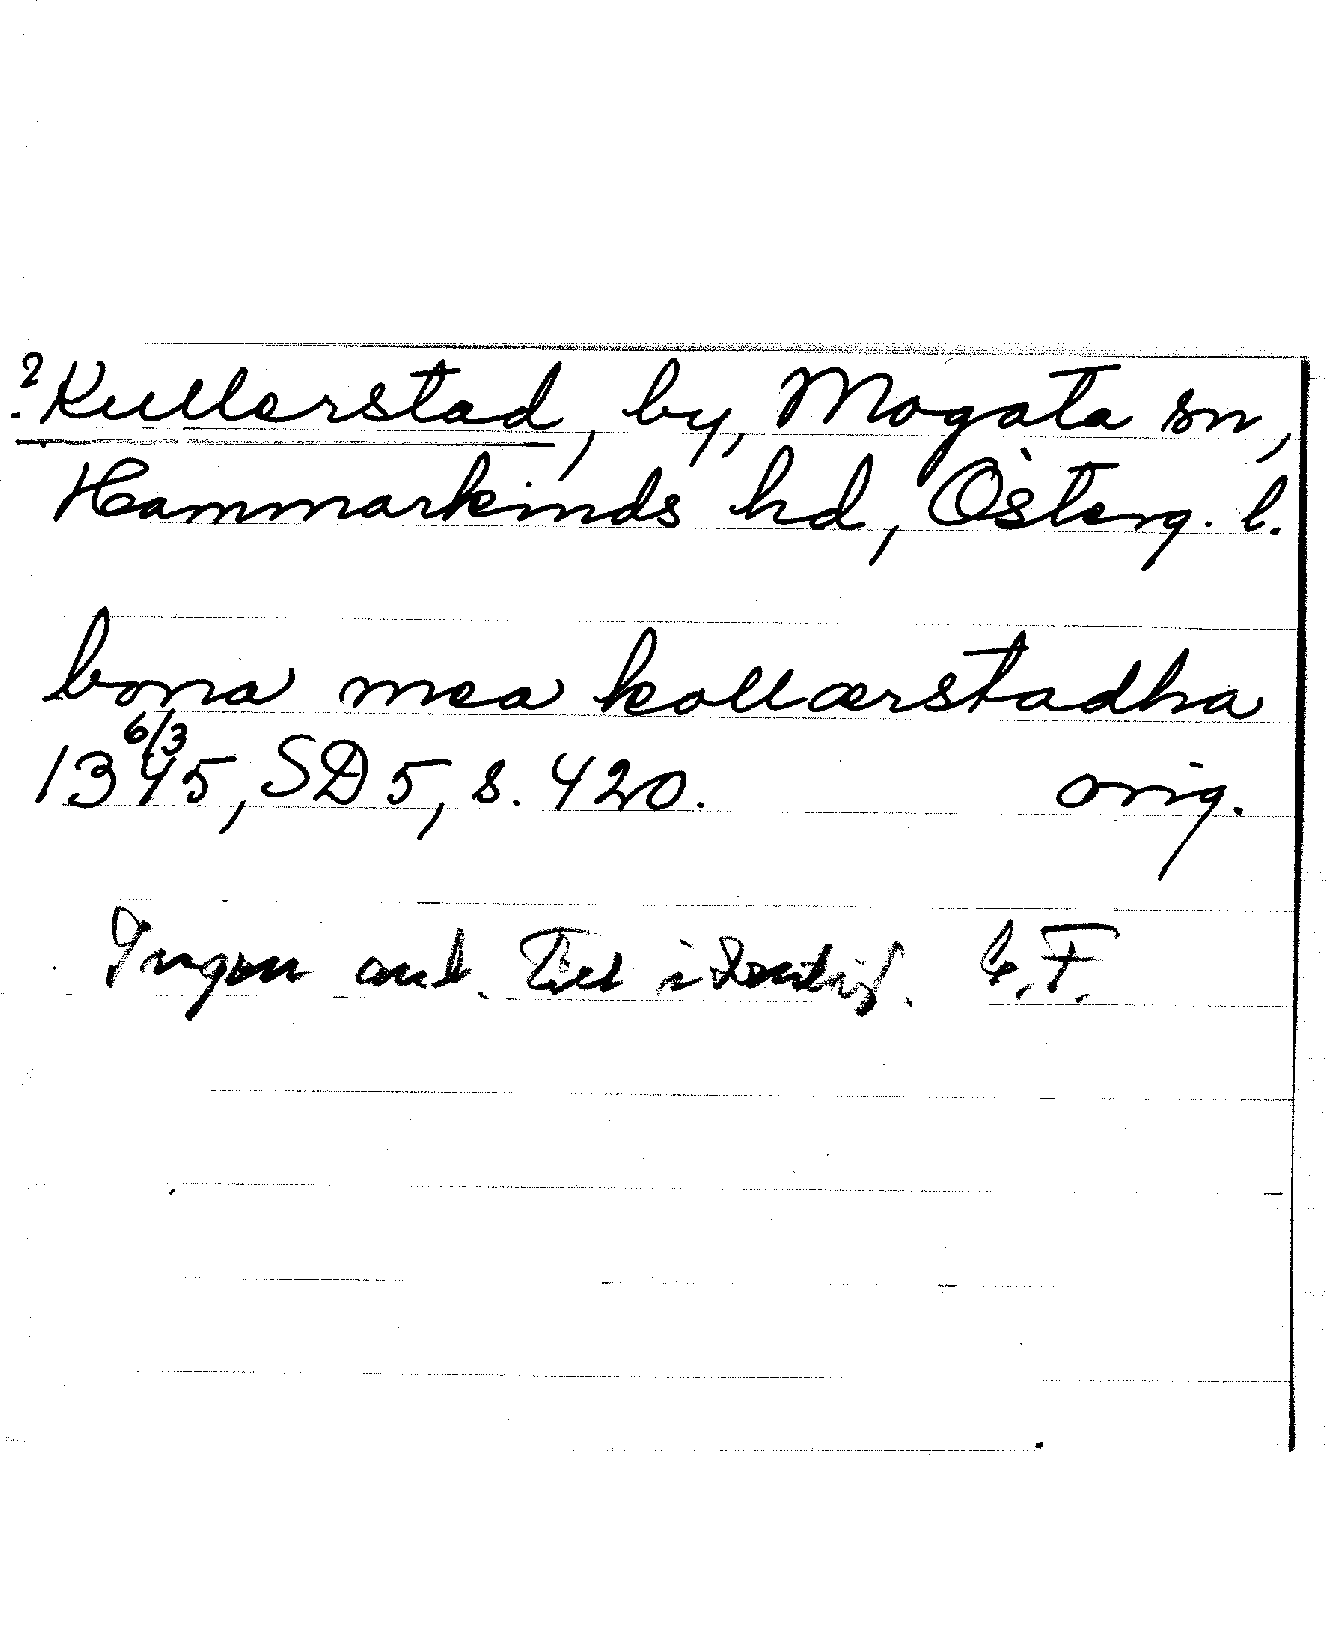 ? Kullerstad, by, Mogata sn,
Hammarkinds hd, Österg. l.
bona mea kollærstadha
1345, 6/3 SD 5, s. 420. orig.
Ingen ant. till identif. C.F.